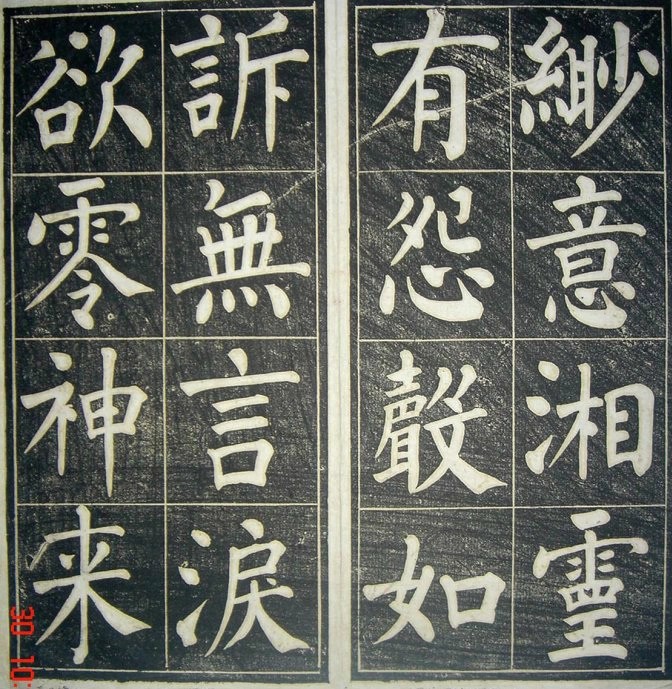 緲意湘靈
有怨聲如
訴無言淚
欲零神来
30 10: